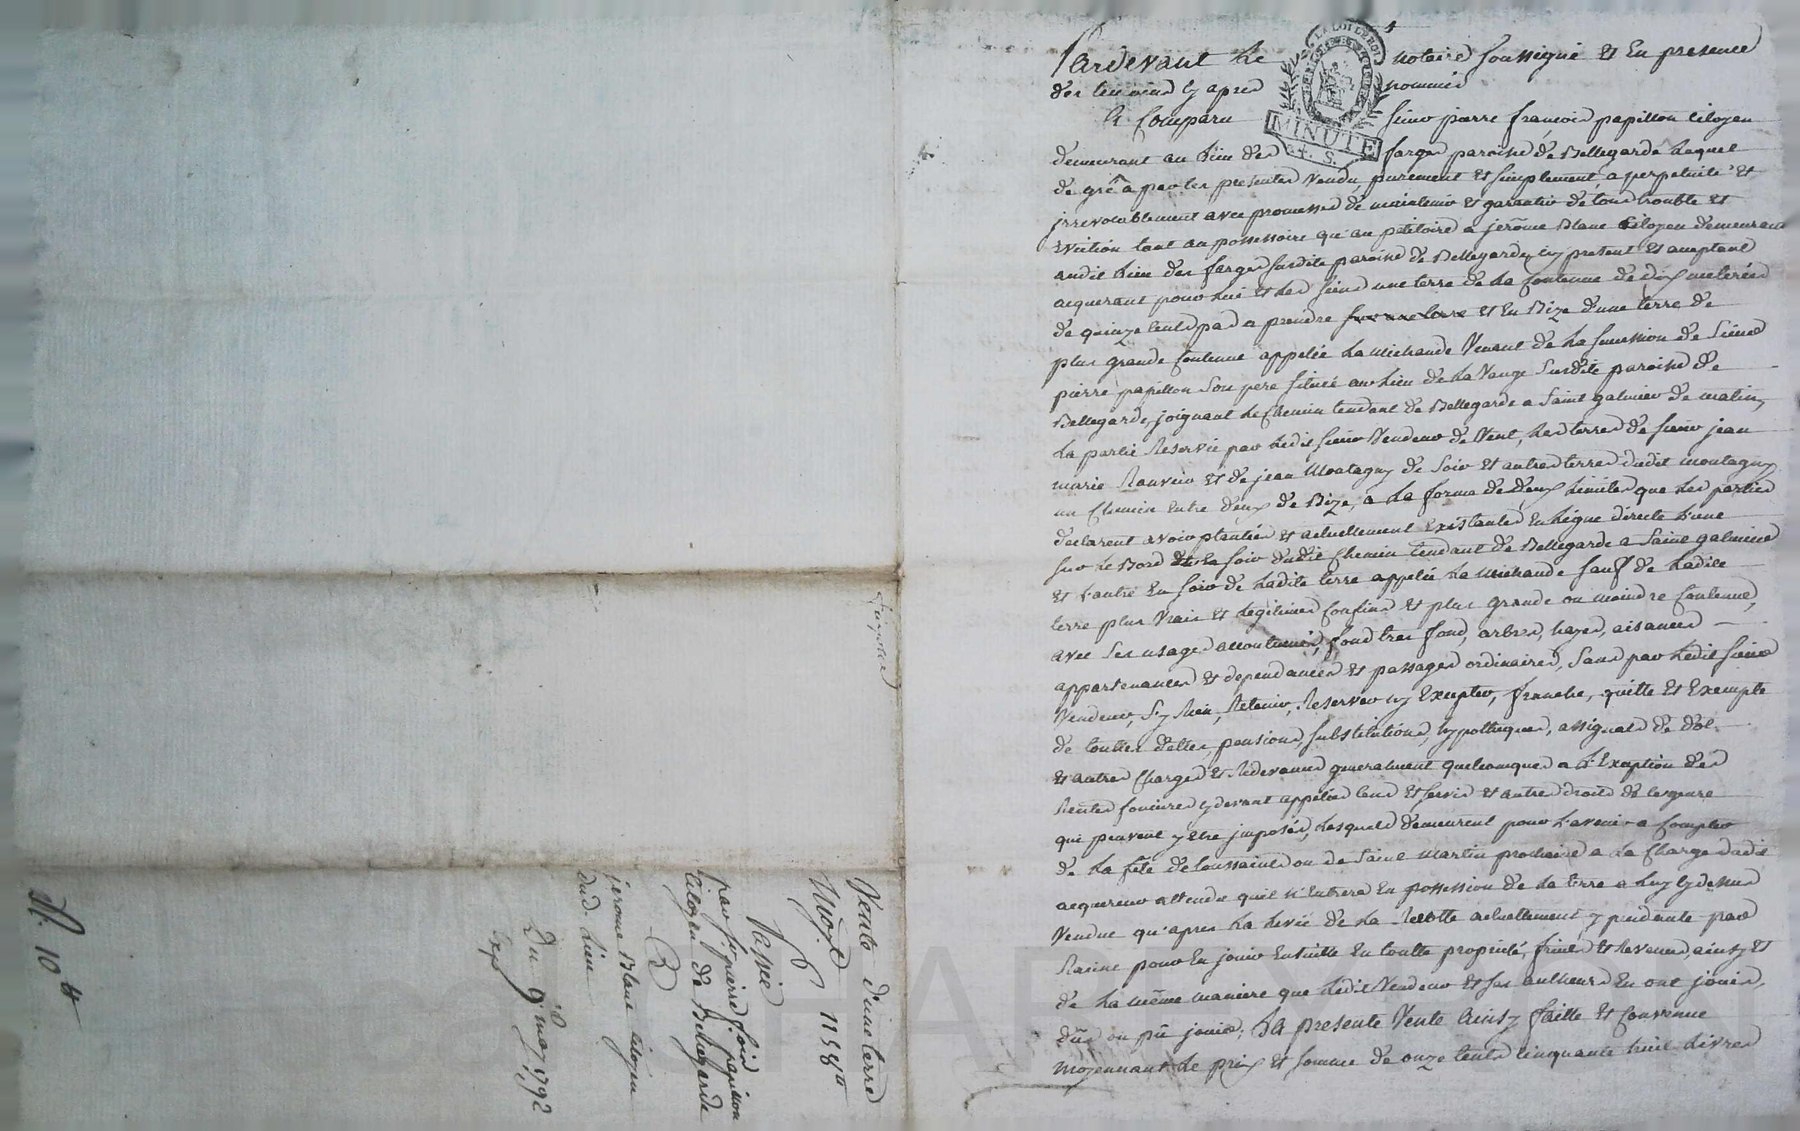 Pardevant Le notaire soussigné et En presence
des temoins cy apres nommés
A Comparu sieur pierre françois papillon citoyen
demeurant au Lieu des farges paroisse de Bellegarde Lequel
de gré a par les presentes Vendu purement et simplement, a perpetuité et
jrrevocablement avec promesses de maintenir et garantir de tous trouble et
Eviction tant au possessoire qu'au petitoire a jerôme Blanc Citoyen demeurant
audit Lieu des farges susdite paroisse de Bellegarde, cy present et acceptant
acquerant pour Lui et Les siens une terre de La Contenue de dix meterées
de quinze Cents pas a prendre sur une terre et En Bize d'une terre de
plus grande Contenue appelée La michaude Venant de La succession de Sieur
pierre papillon Son pere située au Lieu de La Vauge Susdite paroisse de
Bellegarde, joignant Le Chemin tendant de Bellegarde a Saint galmier de matin,
La partie Reservée par Ledit sieur Vendeur de Vent, Les terres de sieur jean
marie et de jean Montagny de Soir et autres terres dudit montagny
un Chemin Entre deux de Bize, a La forme de deux Limites que Les parties
declarent avoir plantées et actuellement Existantes En Ligne directe L'une
sur Le Bord En Soir dudit Chemin tendant de Bellegarde a Saint galmier
et L'autre En Soir de Ladite terre appelée La Michaude sauf de Ladite
terre plus Vrais et Legitimes Confins et plus grande ou moindre Contenue,
avec Ses usages accoutumés, fond tres fond, arbres, hayes, aisances
appartenances et dependances et passages ordinaires, Sans par Ledit sieur
Vendeur, S'y Rien, Retenir, Reserver ny Excepter, franche, quitte et Exempte
de touttes dettes, pensions, substitutions, hypotheques, assignat de dot
et autres Charges et Redevances generalment quelconques a L'Exception des
Rentes foncieres cy devant appelées Cens et servis et autres droits de ce genre
qui peuvent y être jmposés, Lesquels demeurent pour L'avenir a Compter
de La fête de toussaint ou de Saint Martin prochaine a La Charge dudit
acquereur attendu qu'il n'Entrera En possession de La terre a Luy Cy dessus
Vendue qu'apres La Levée de La Recolte actuellement y pendante par
Racine pour En jouir Ensuitte En toutte proprieté, fruits et Revenus, ainsy et
de La même maniere que Ledit Vendeur et ses autheurs En ont jouis,
dû ou pû jouir; La presente Vente Ainsy faitte et Convenue
moyennant Le prix et somme de onze Cents Cinquante huit Livres
MINUTE
4. S.
Vente d'une terre
1158 #
passée
par sr. pierre f.çois papillon
citoyen de Bellegarde
a
jerome Blanc citoyen
dud. Lieu
Du 9 may 1792
Exp
R. 10 #